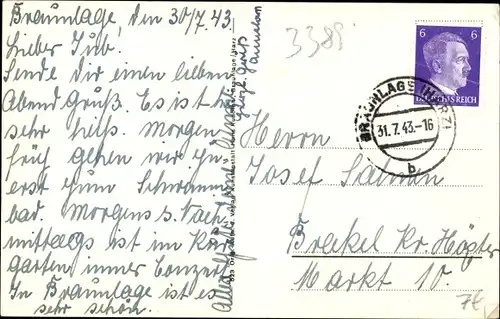 Braunlage, den 30/7.43.
Lieber Jub.
Sende dir einen lieben
Abend Gruß. Es ist hier
sehr heiß. Morgen
früh gehen wir zu-
erst zum Schwimm
bad. Morgens u. Nach
mittags ist im Kur
garten immer Conzert.
In Braunlage ist es
sehr schön.
3389
6 6
DEUTSCHES REICH
BRAUNLAGE (HARZ)
31.7.43.-16
b
Herrn
Josef Salmen
Brakel Kr. Höxter
Markt 10.
7€